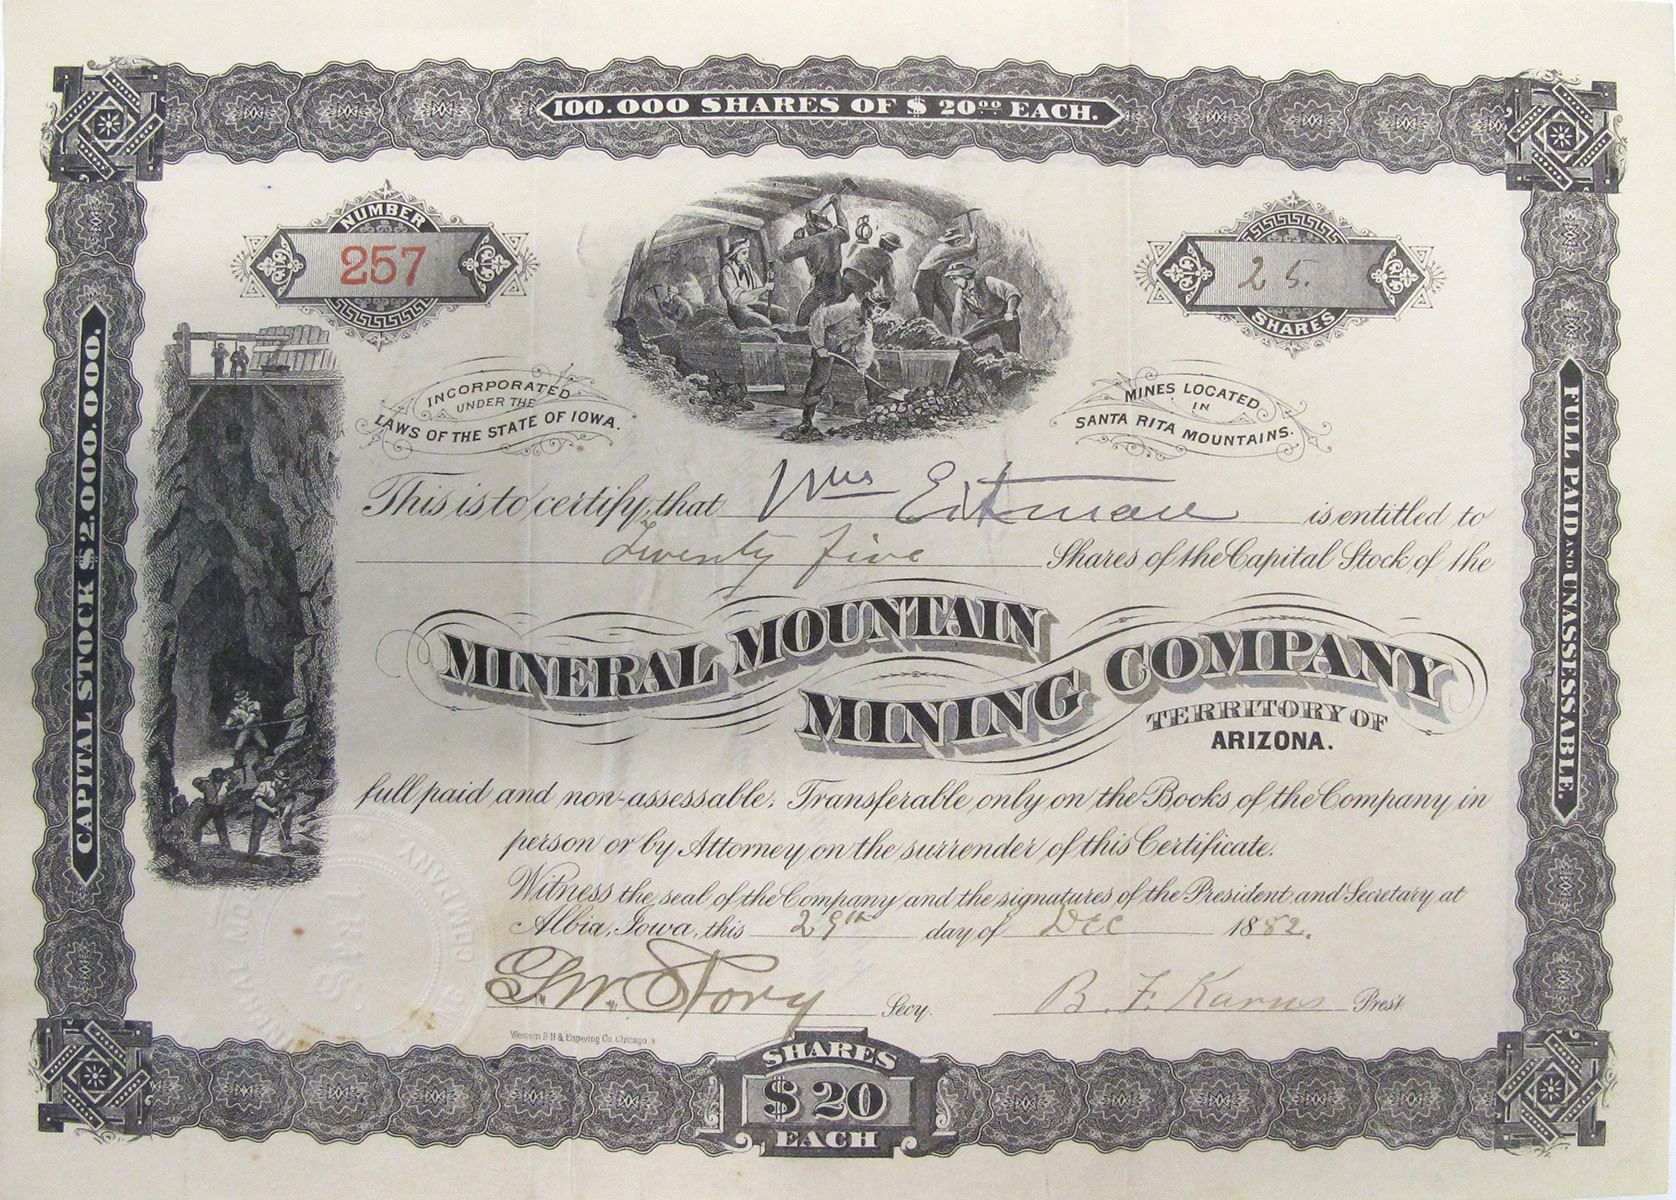 100.000 SHARES OF $ 20 00 EACH.
NUMBER
257
25.
SHARES
INCORPORATED
UNDER THE
LAWS OF THE STATE OF IOWA.
MINES LOCATED
IN
SANTA RITA MOUNTAINS.
CAPITAL STOCK $2.000.000.
FULL PAID AND UNASSESSABLE.
This is to certify, that Eikman is entitled to
Twenty five Shares of the Capital Stock of the
MINERAL MOUNTAIN
MINING COMPANY
TERRITORY OF
ARIZONA.
full paid and non-assessable. Transferable only on the Books of the Company in
person or by Attorney on the surrender of this Certificate.
Witness the seal of the Company and the signatures of the President and Secretary at
Albia, Iowa, this 29th day of Dec 1882.
Story Secy. B. F. Karns Prest.
Western B N & Engraving Co. Chicago.
SHARES
$ 20
EACH